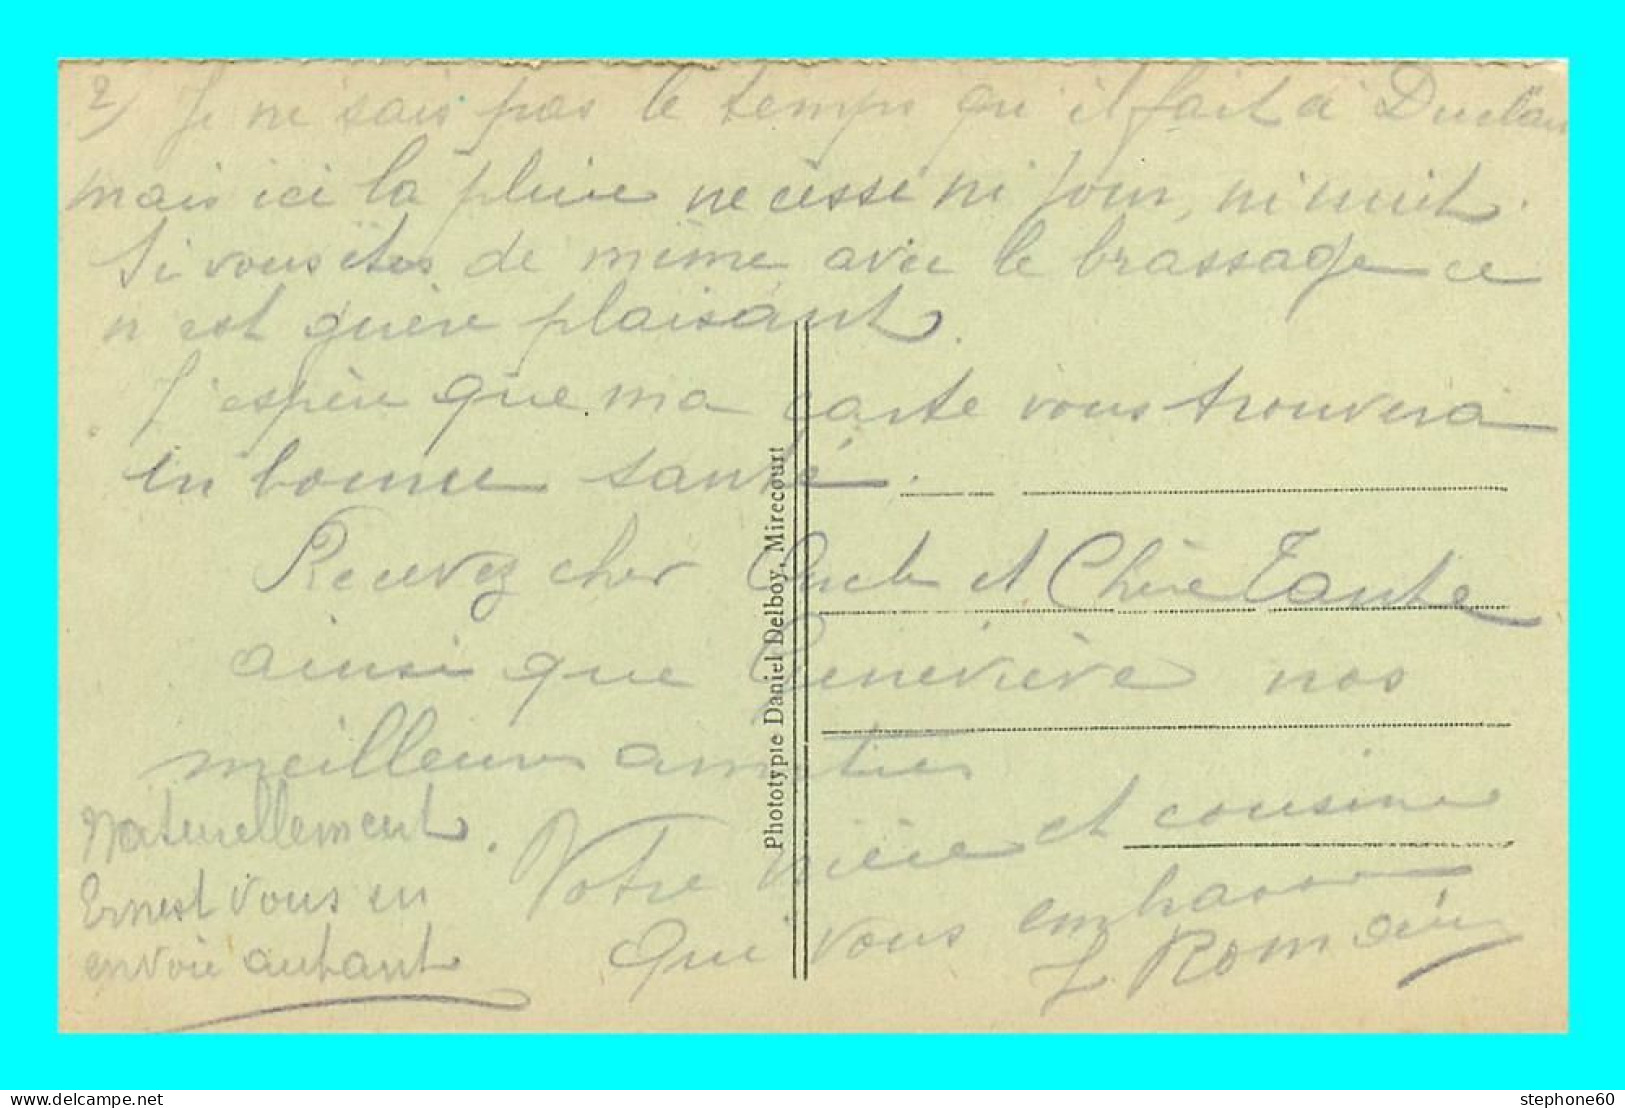 2) Je ne sais pas le temps qu'il fait à
mais ici la pluie ne cesse ni jour, ni nuit.
Si vous êtes de même avec le brassage ce
n'est guère plaisant.
J'espère que ma carte vous trouvera
en bonne santé.
Recevez cher Oncle et Chère Tante
ainsi que Geneviève nos
meilleures amitiés
Votre nièce et cousine
qui vous embrasse
J. Romain
Naturellement
Ernest vous en
envoie autant
Phototypie Daniel Delboy, Mirecourt
delcampe.net
stephone60